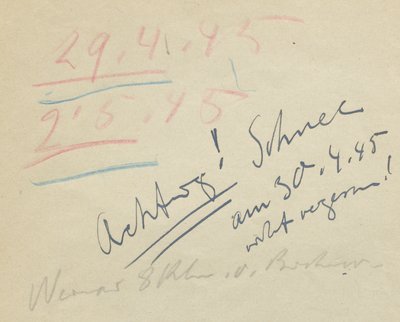 29.4.45
2.5.45
Achtung! Schnee
am 30.4.45
nicht vergessen!
Weimar 8 Klm. v.